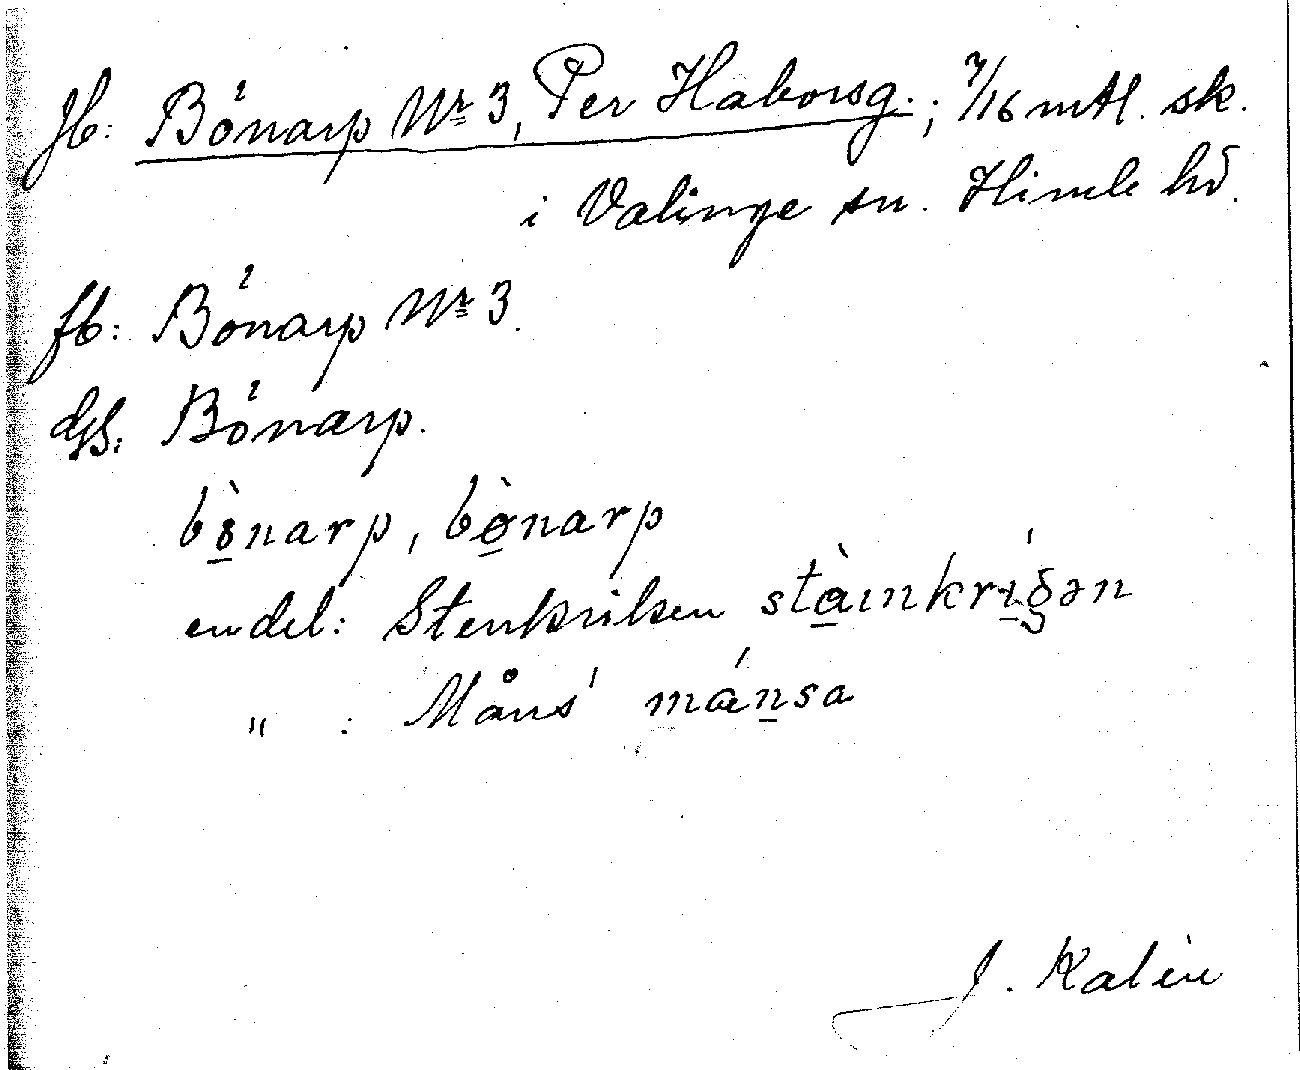 Jb: Bönarp Nr 3, Per Haborsg.; 7/16 mtl. sk.
i Valinge sn. Himle hd.
fb: Bönarp Nr 3.
GS: Bönarp.
bö̀narp, bø̀narp
en del: Stenkriken stàınkríǥən
" : Måns' mánsa
J. Kalén